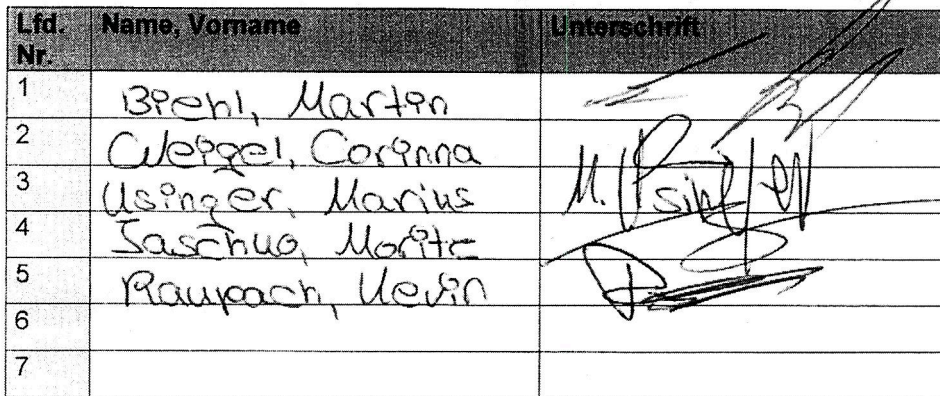 Lfd. Nr. Name, Vorname Unterschrift
1 Biehl, Martin
2 Weigel, Corinna
3 Usinger, Marius M. Usinger
4 Moritz
5 Raupach, Kevin
6
7